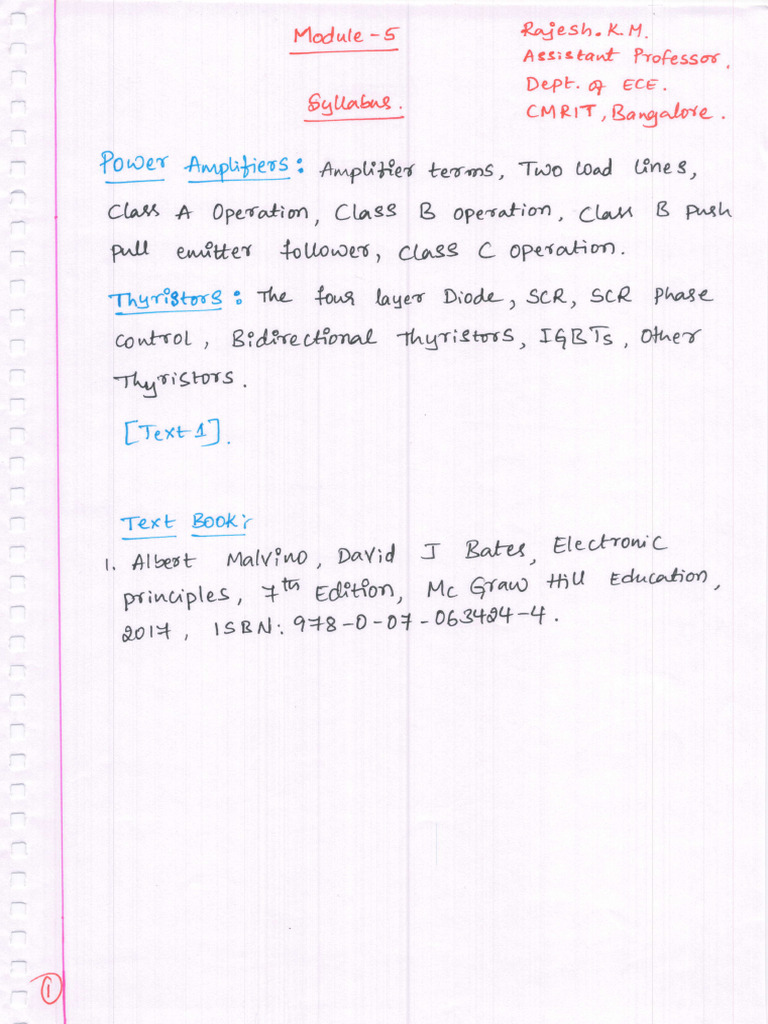 Module - 5
Rajesh. K. M.
Assistant Professor.
Dept. of ECE.
CMRIT, Bangalore.
Syllabus.
Power Amplifiers: Amplifier terms, Two load lines,
Class A Operation, Class B operation, Class B push
pull emitter follower, class C operation.
Thyristors: The four layer Diode, SCR, SCR Phase
control, Bidirectional Thyristors, IGBTs, Other
Thyristors.
[Text 1].
Text Book:
1. Albert Malvino, David J Bates, Electronic
principles, 7th Edition, Mc Graw Hill Education,
2017, ISBN: 978-0-07-063424-4.
1